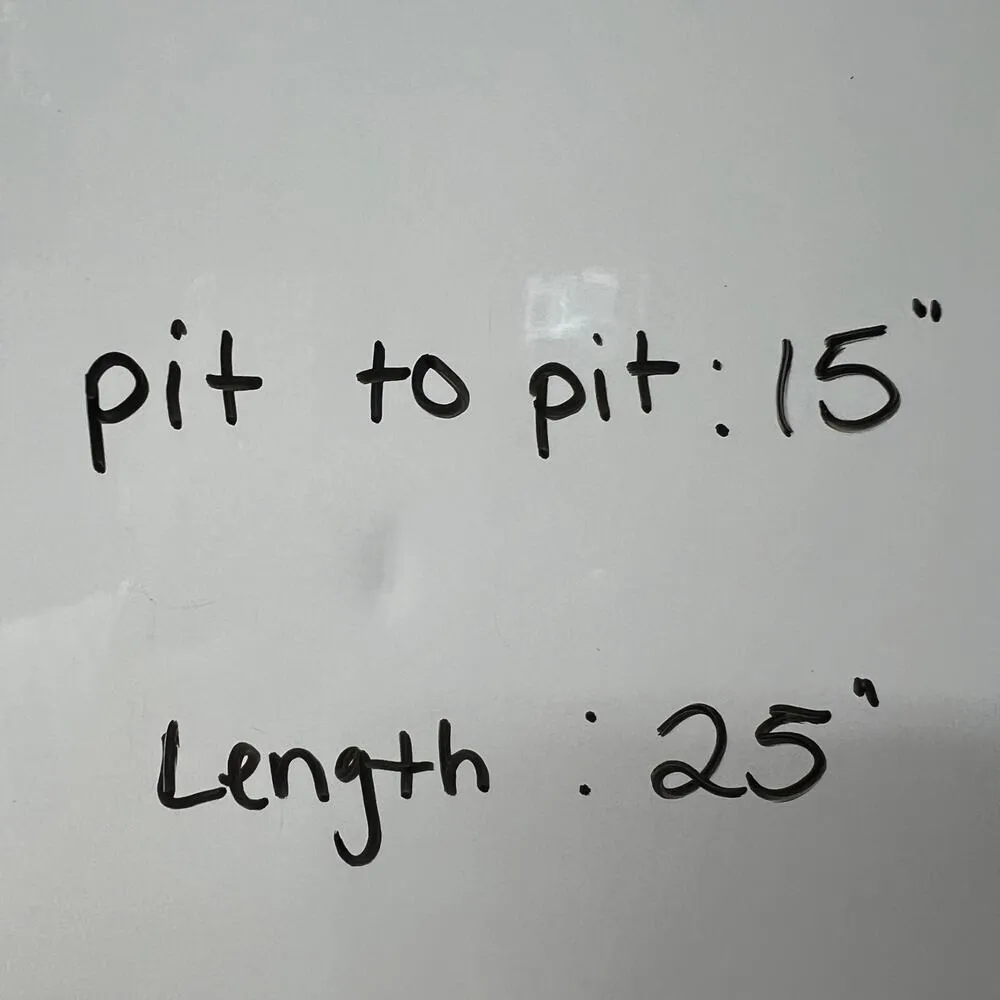 pit to pit: 15"
Length : 25"